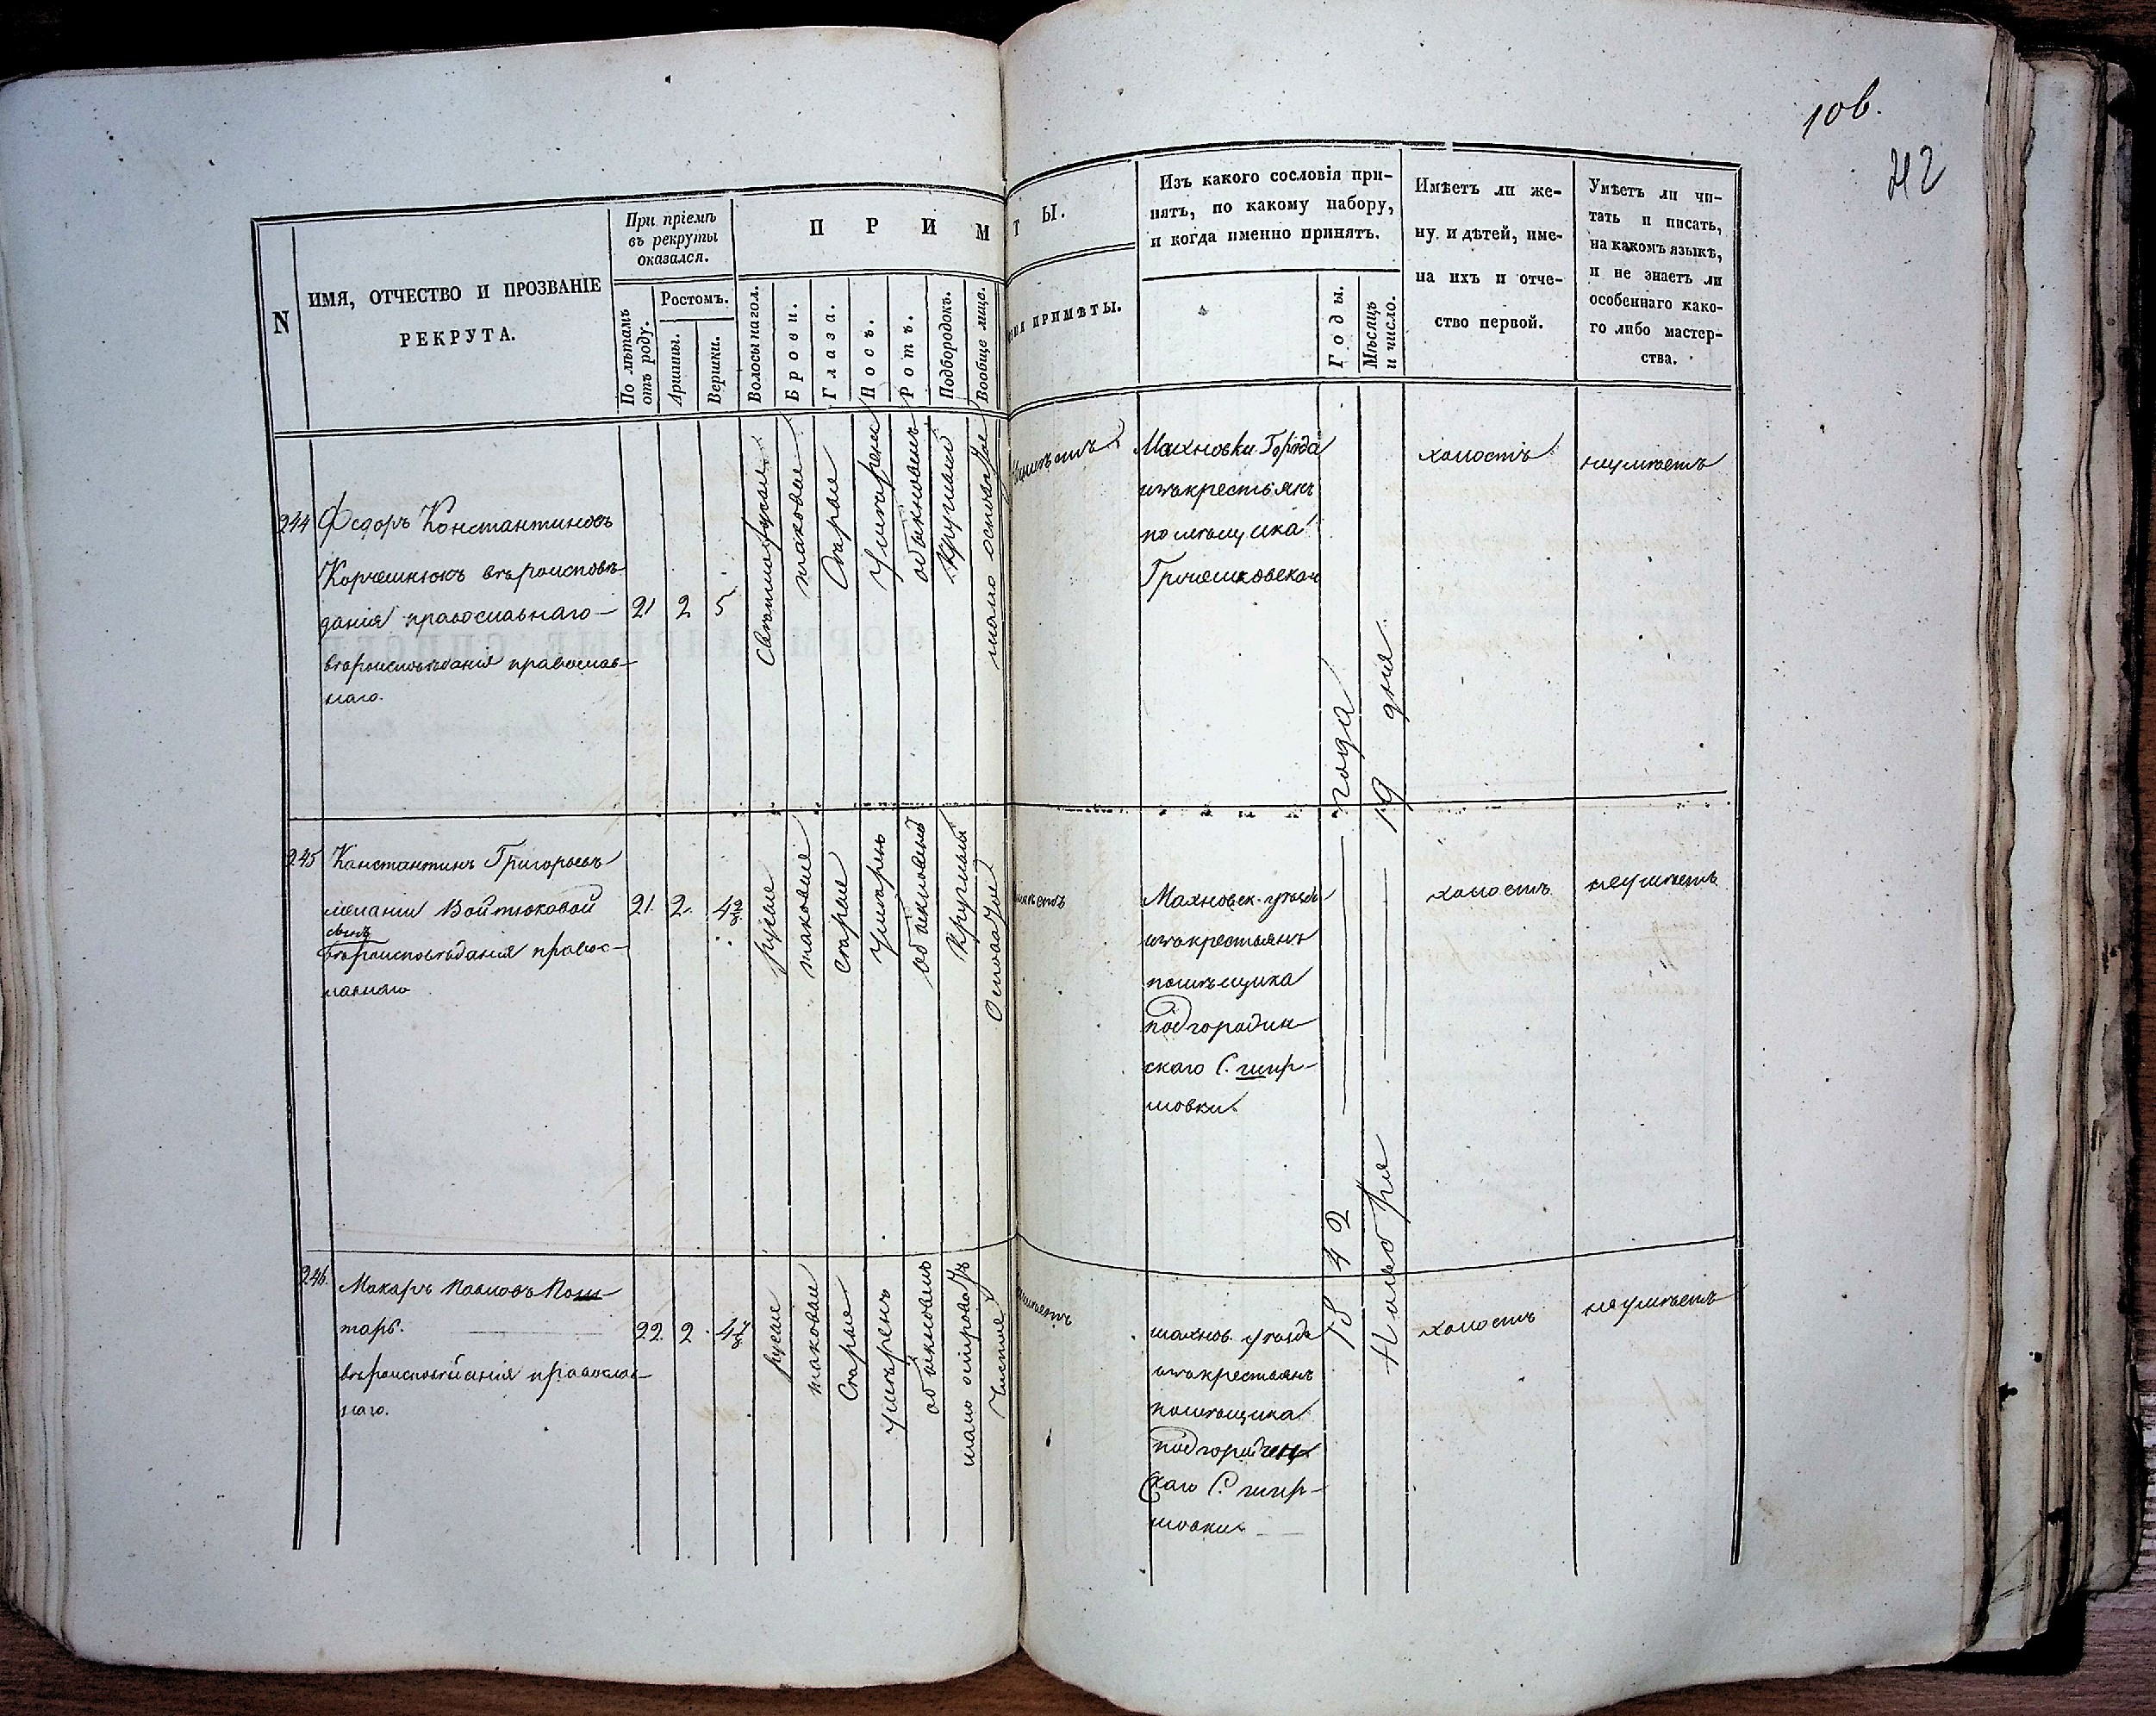 106.
42
N
ИМЯ, ОТЧЕСТВО И ПРОЗВАНІЕ
РЕКРУТА.
При пріемѣ
въ рекруты
оказался.
По лѣтамъ
отъ роду.
Ростомъ.
Аршины.
Вершки.
П Р И М
Волосы на гол.
Брови.
Глаза.
Носъ.
Ротъ.
Подбородокъ.
Вообще лице.
Т Ы.
ПРИМѢТЫ.
Изъ какого сословія при-
нятъ, по какому набору,
и когда именно принятъ.
Годы.
Мѣсяцъ
и число.
Имѣетъ ли же-
ну и дѣтей, име-
на ихъ и отче-
ство первой.
Умѣетъ ли чи-
тать и писать,
на какомъ языкѣ,
и не знаетъ ли
особеннаго како-
го либо мастер-
ства.
244
Федоръ Константиновъ
вѣроисповѣ-
данія православнаго
вѣроисповѣданія православ-
наго.
21
2
5
Светлорусые
таковые
Серые
Умѣрен
обыкновенъ
Круглый
мало осповат
Махновки Города
изъ крестьянъ
помѣщика
холостъ
неумѣетъ
245
Канстантинъ Григорьевъ
мелании Войтюковой
сынъ
вѣроисповѣданія правос-
лавнаго
21.
2.
русые
таковые
серые
умѣренъ
обыкновенъ
круглый
Махновск. уѣзда
изъ крестьянъ
помѣщика
подгородин-
скаго С. шир-
мовки.
холостъ
неумѣетъ
246.
Макаръ Павловъ
таръ.
вѣроисповѣданія православ-
наго.
22.
2.
русые
таковые
Серые
умѣренъ
обыкновенъ
Чистое
махнов. уѣзда
изъ крестьянъ
помѣщика
подгороден-
скаго С. шир-
мовки
1842 года
Ноября 19 дня
холостъ
неумѣетъ